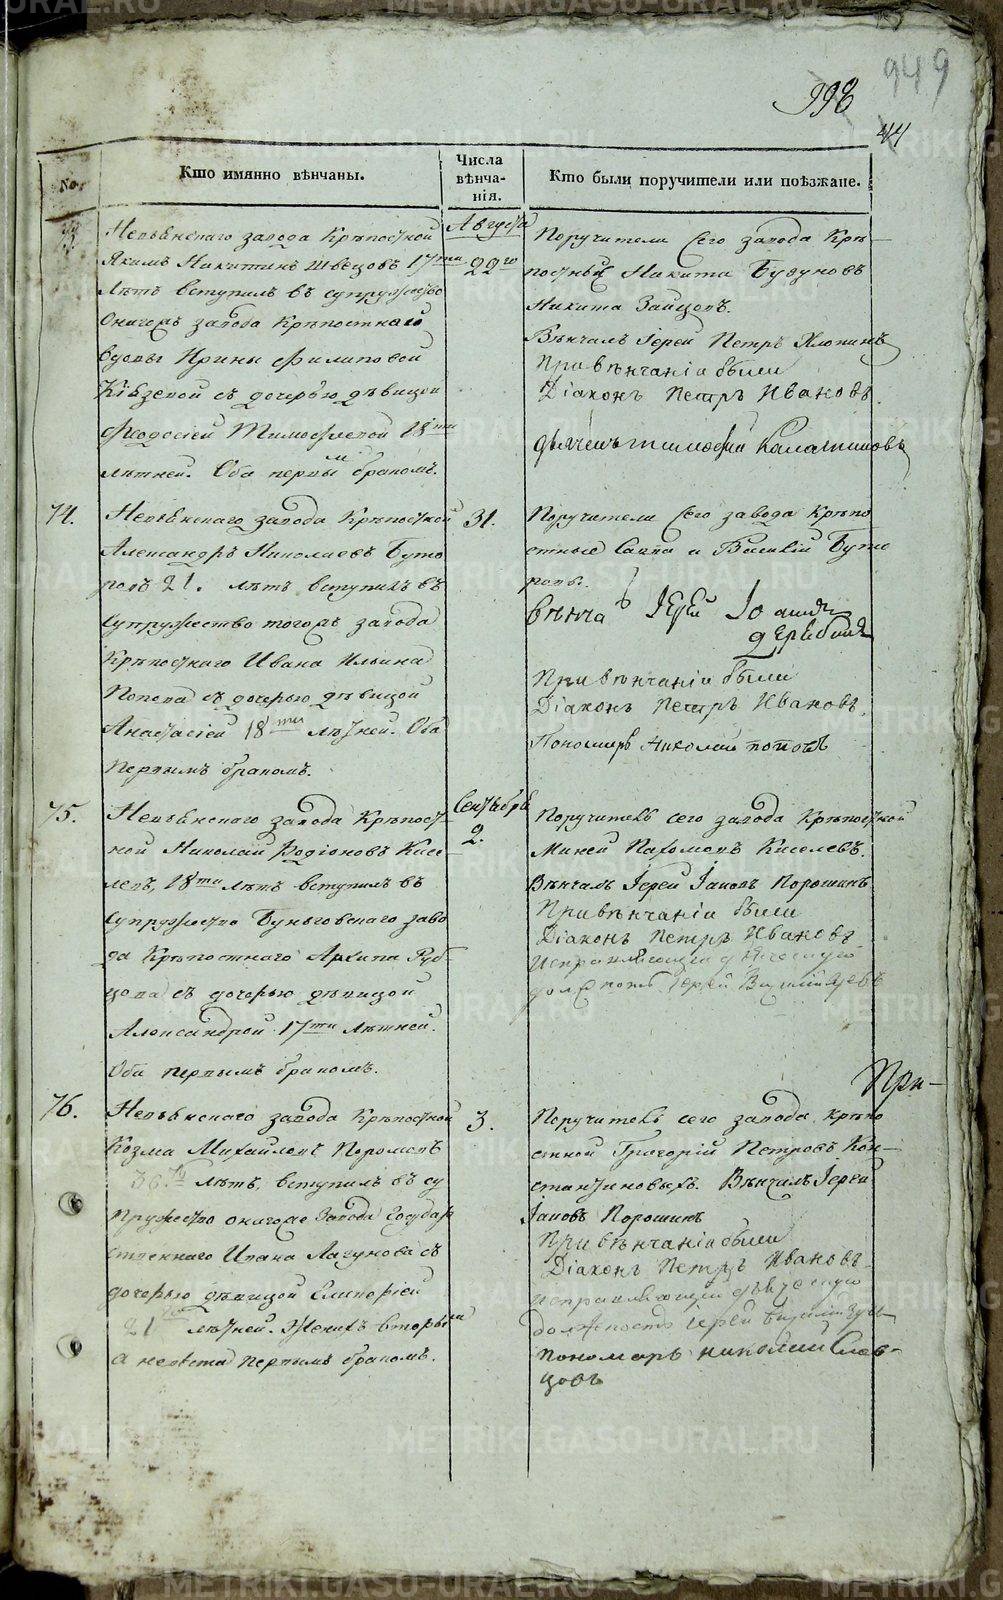 949
998
44
№.
Кто имянно вѣнчаны.
Числа вѣнча-нія.
Кто были поручители или поѣзжане.
73.
Невьянскаго завода Крѣпостной
Якимъ Никитинъ Швецовъ 17ти
лѣтъ вступилъ въ супружество
Оногожъ завода Крѣпостнаго
вдовы Ирины Филиповой
съ дочерью дѣвицой
Феодосіей Тимофеевой 18ти
лѣтней. Оба первымъ бракомъ.
Августа
22го
Поручители Сего завода Крѣ-
постныя Никита Бузуновъ
Никита Зайцовъ.
Вѣнчалъ Іерей Петръ Хлопинъ
При вѣнчаніи были
Діаконъ Петръ Ивановъ.
дьячекъ Тимофей Калашниковъ
74.
Невьянскаго завода Крѣпостной
Александръ Николаевъ Буто
ровъ 21. лѣтъ вступилъ въ
супружество тогожъ завода
Крѣпостнаго Ивана Ильина
Попова съ дочерью дѣвицой
Анастасіей 18ти лѣтней. Оба
первымъ бракомъ.
31.
Поручители Сего завода Крѣпо
стные Савва и Василій Буто
ровы.
вѣнча Іерей Іоаннъ
дерябинъ
При вѣнчаніи были
Діаконъ Петръ Ивановъ.
Пономарь Николай Поповъ
75.
Невьянскаго завода Крѣпост-
ной Николай Родіоновъ Кисе
левъ, 18ти лѣтъ вступилъ въ
супружество Быньговскаго заво
да Крѣпостнаго Архипа Руб
цова съ дочерью дѣвицой
Александрой 17ти лѣтней.
Оба первымъ бракомъ.
Сентября
2.
Поручитель сего завода Крѣпостной
Миней Пахомовъ Киселевъ.
Вѣнчалъ Іерей Іаковъ Порошинъ
При вѣнчаніи были
Діаконъ Петръ Ивановъ
Исправляющій дьяческую
должность Іерей
При-
76.
Невьянскаго завода Крѣпостной
Козма Михайловъ
36.ти лѣтъ, вступилъ въ су
пружество оногоже Завода Государ
ственнаго Ивана Лагунова съ
дочерью дѣвицой
21 лѣтней. Женихъ вторымъ
а невѣста первымъ бракомъ.
3.
Поручитель сего завода крѣпо
стной Григорій Петровъ Кон-
стантиновыхъ. Вѣнчалъ Іерей
Іаковъ Порошинъ
При вѣнчаніи были
Діаконъ Петръ Ивановъ
исправляющій дьяческую
должность Іерей
Пономарь Николай Слав-
цовъ
METRIKI.GASO-URAL.RU